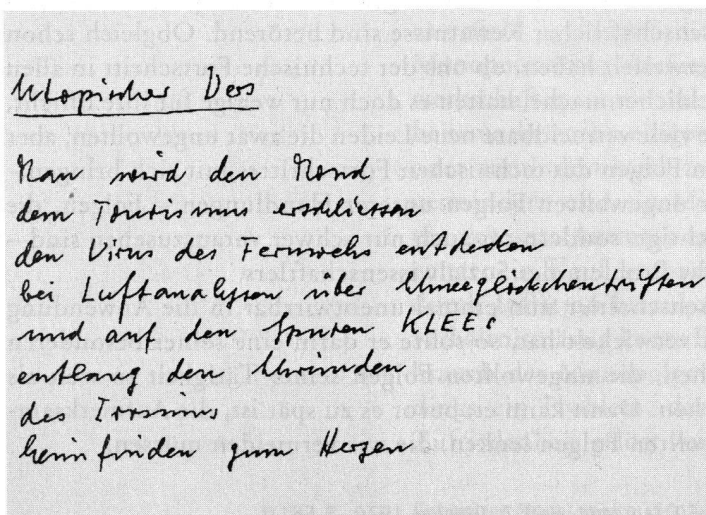 Utopischer Vers
Man wird den Mond
dem Tourismus erschliessen
den Virus des Fernwehs entdecken
bei Luftanalysen über Schneeglöckchentriften
und auf den Spuren KLEEs
entlang den Schründen
des Irrsinns
heimfinden zum Herzen